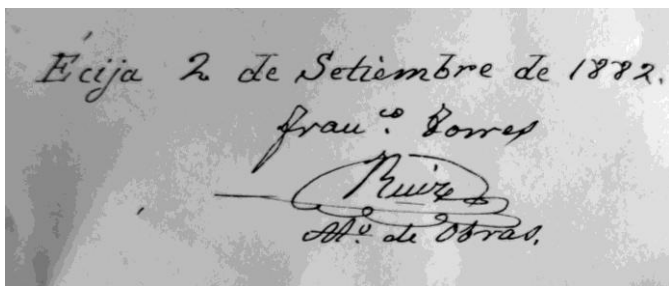 Écija 2 de Setiembre de 1882.
Fran.co Torres
Ruiz
M.o de Obras.